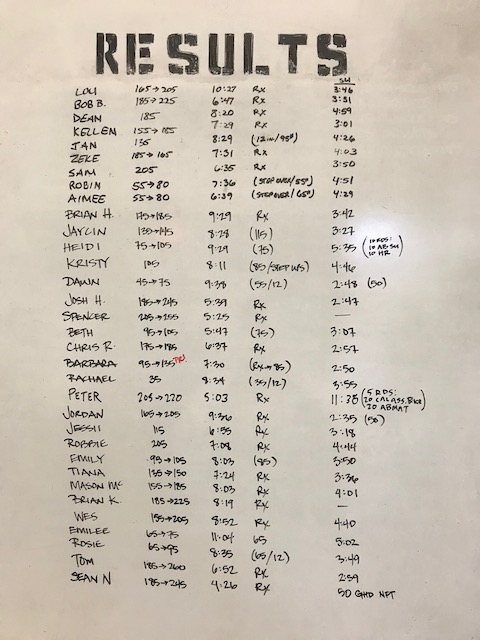 RESULTS
SU
LOU 165→205 10:27 RX 3:46
BOB B. 185→225 6:47 RX 3:31
DEAN 185 8:20 RX 4:59
KELLEN 155→185 7:29 RX 3:01
JAN 135 8:29 (12in/95#) 4:26
ZEKE 185→165 7:31 RX 4:03
SAM 205 6:35 RX 3:50
ROBIN 55→80 7:36 (STEP OVER/55#) 4:51
AIMEE 55→80 6:39 (STEPOVER/65#) 4:29
BRIAN H. 175→185 9:29 RX 3:42
JAYLIN 135→145 8:28 (115) 3:27
HEIDI 75→105 9:29 (75) 5:35 (10 RDS: 10 AB SU 10 HR)
KRISTY 105 8:11 (85/STEP UPS) 4:46
DAWN 45→75 9:38 (55/12) 2:48 (50)
JOSH H. 185→245 5:39 RX 2:47
SPENCER 205→255 5:25 RX —
BETH 95→105 5:47 (75) 3:07
CHRIS R. 175→185 6:37 RX 2:57
BARBARA 95→135 PR! 7:30 (RX→85) 2:50
RACHAEL 35 8:34 (35/12) 3:55
PETER 205→220 5:03 RX 11:38 (5 RDS: 20 CAL ASS. BIKE 20 ABMAT)
JORDAN 165→205 9:36 RX 2:35 (50)
JESSII 115 6:55 RX 3:18
ROBBIE 205 7:08 RX 4:44
EMILY 95→105 8:03 (85) 3:50
TIANA 135→150 7:24 RX 3:36
MASON MC 155→185 8:03 RX 4:01
BRIAN K. 185→225 8:19 RX —
WES 155→205 8:52 RX 4:40
EMILEE 65→75 11:04 65 5:02
ROSIE 65→95 8:35 (65/12) 3:49
TOM 185→260 6:52 RX 2:59
SEAN N 185→245 4:26 RX 50 GHD NFT